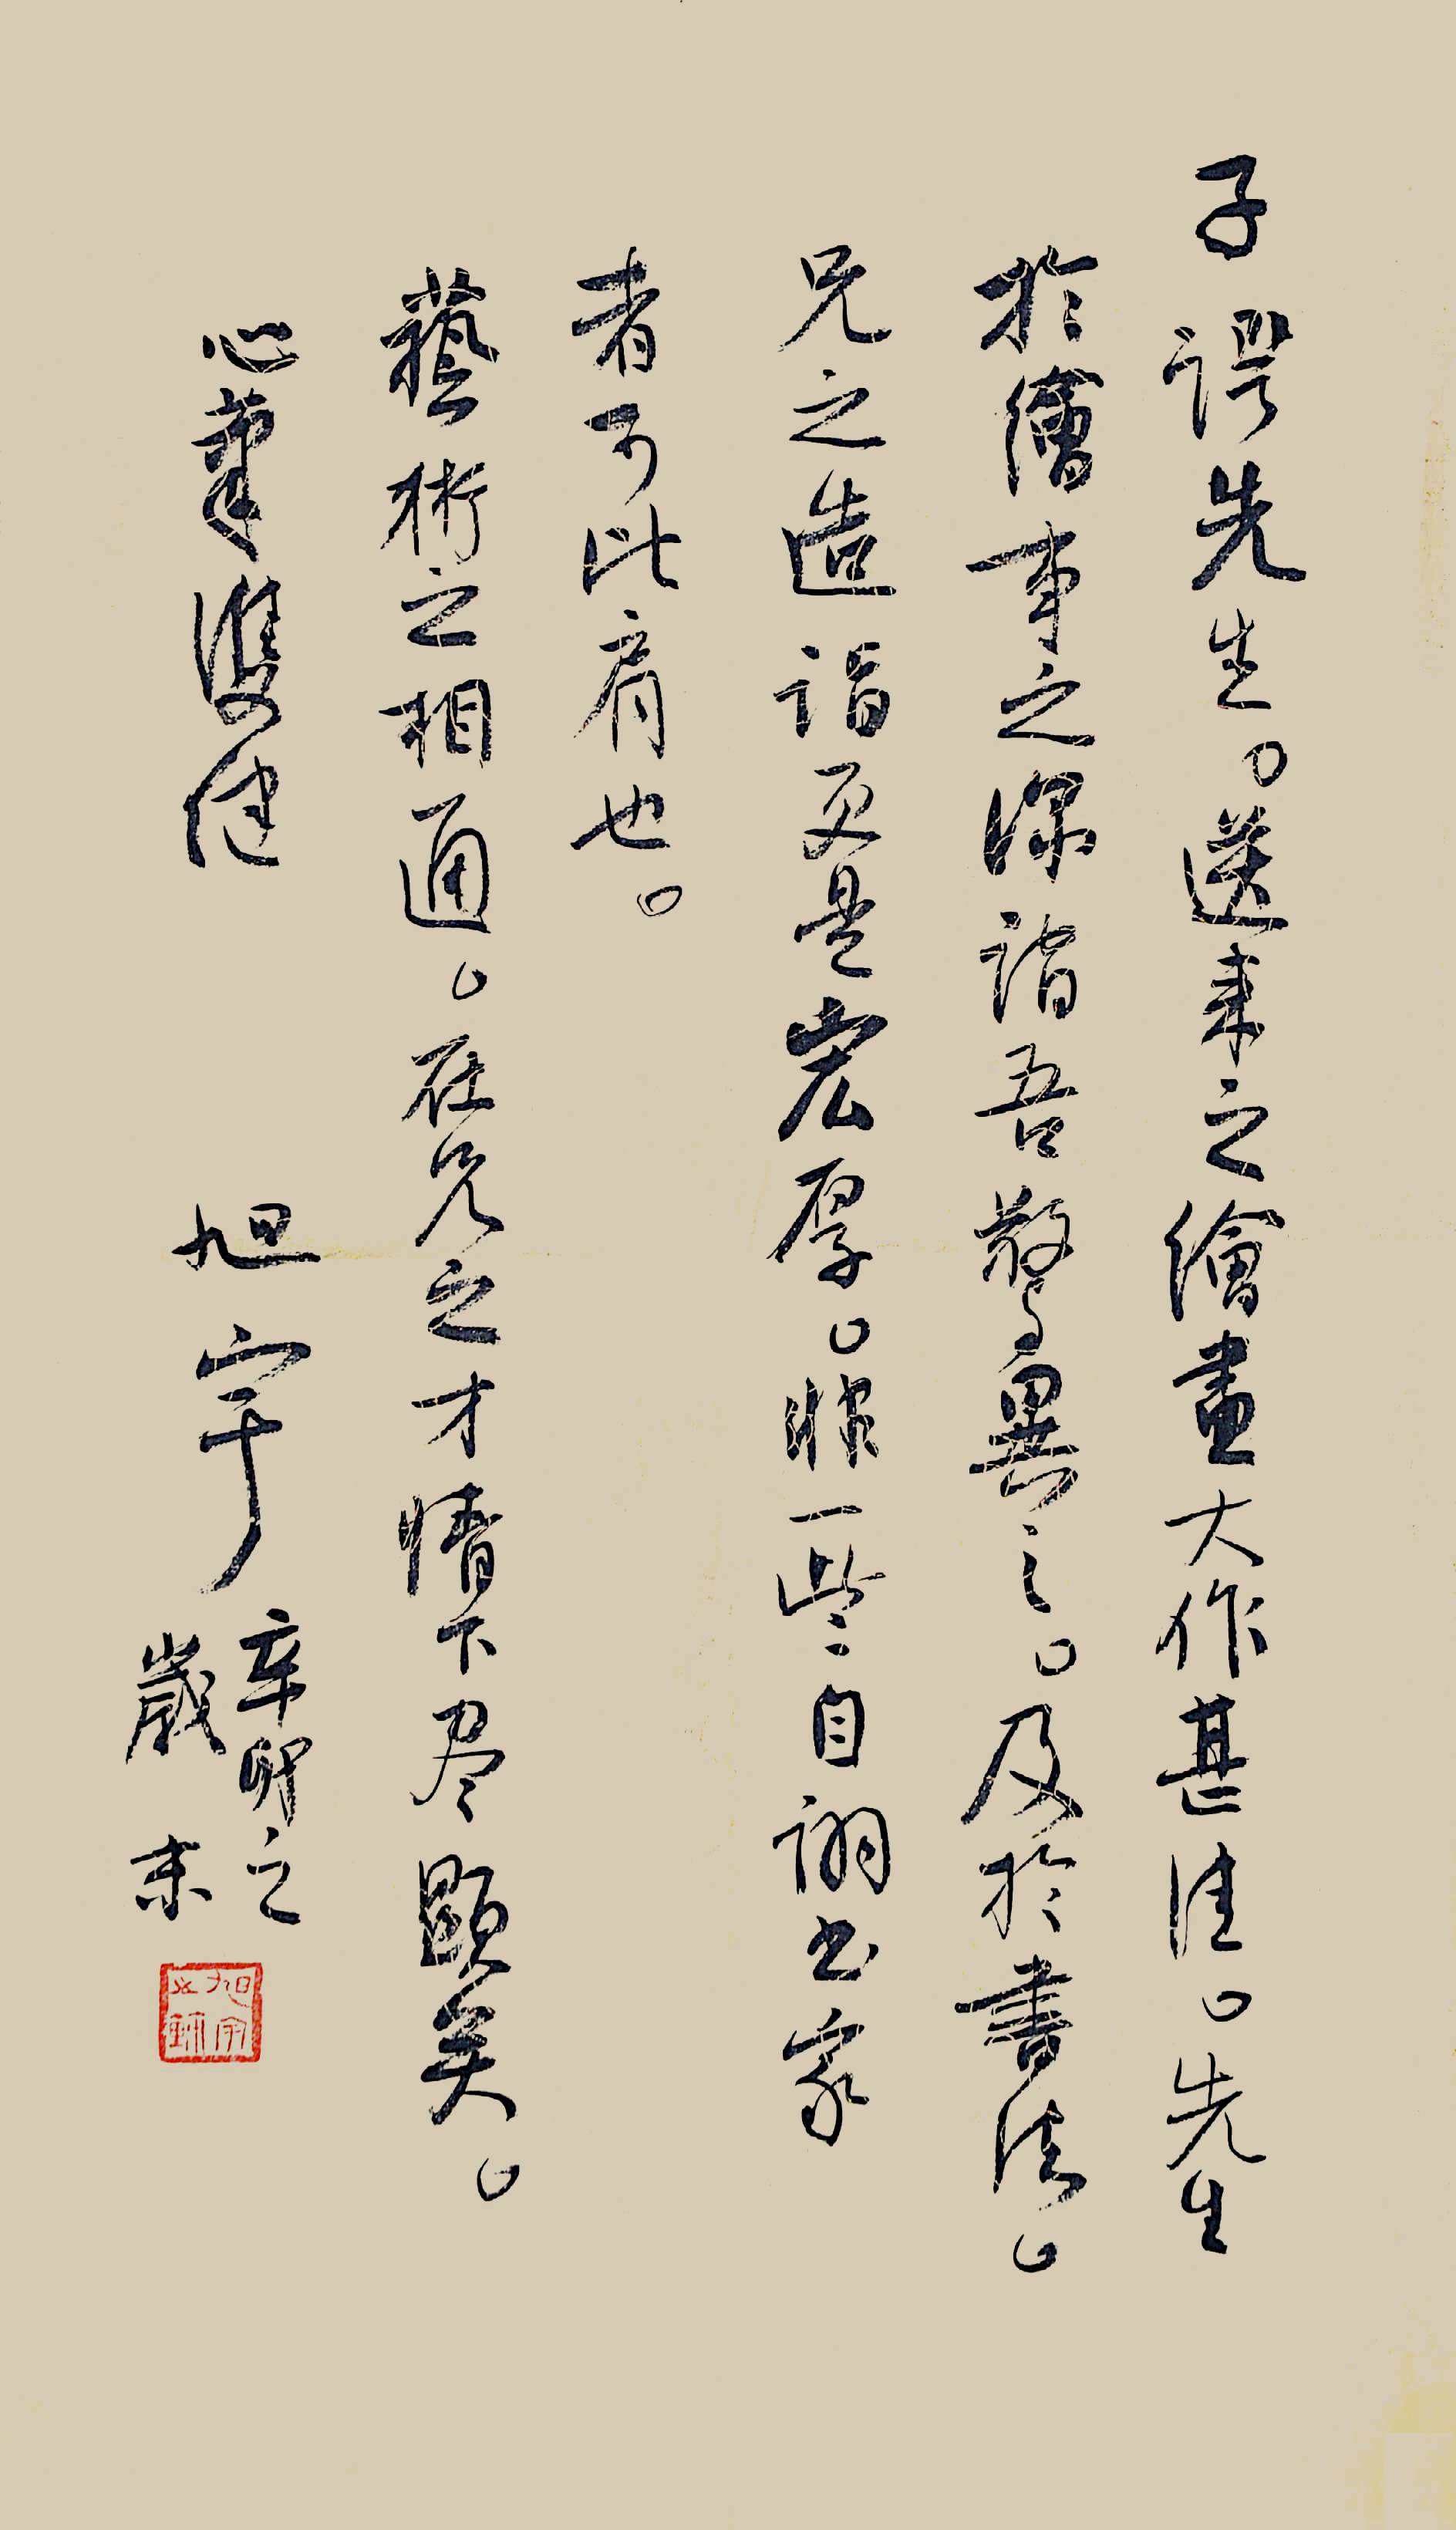 子諤先生。送来之繪畫大作甚佳。先生
於繪事之深詣吾驚異之。及於書法。
兄之造詣更是宏厚。非一些自詡书家
者可比肩也。
藝術之相通。在兄之才情下尽顯矣。
心筆雙健
旭宇
辛卯之
歲末
旭宇